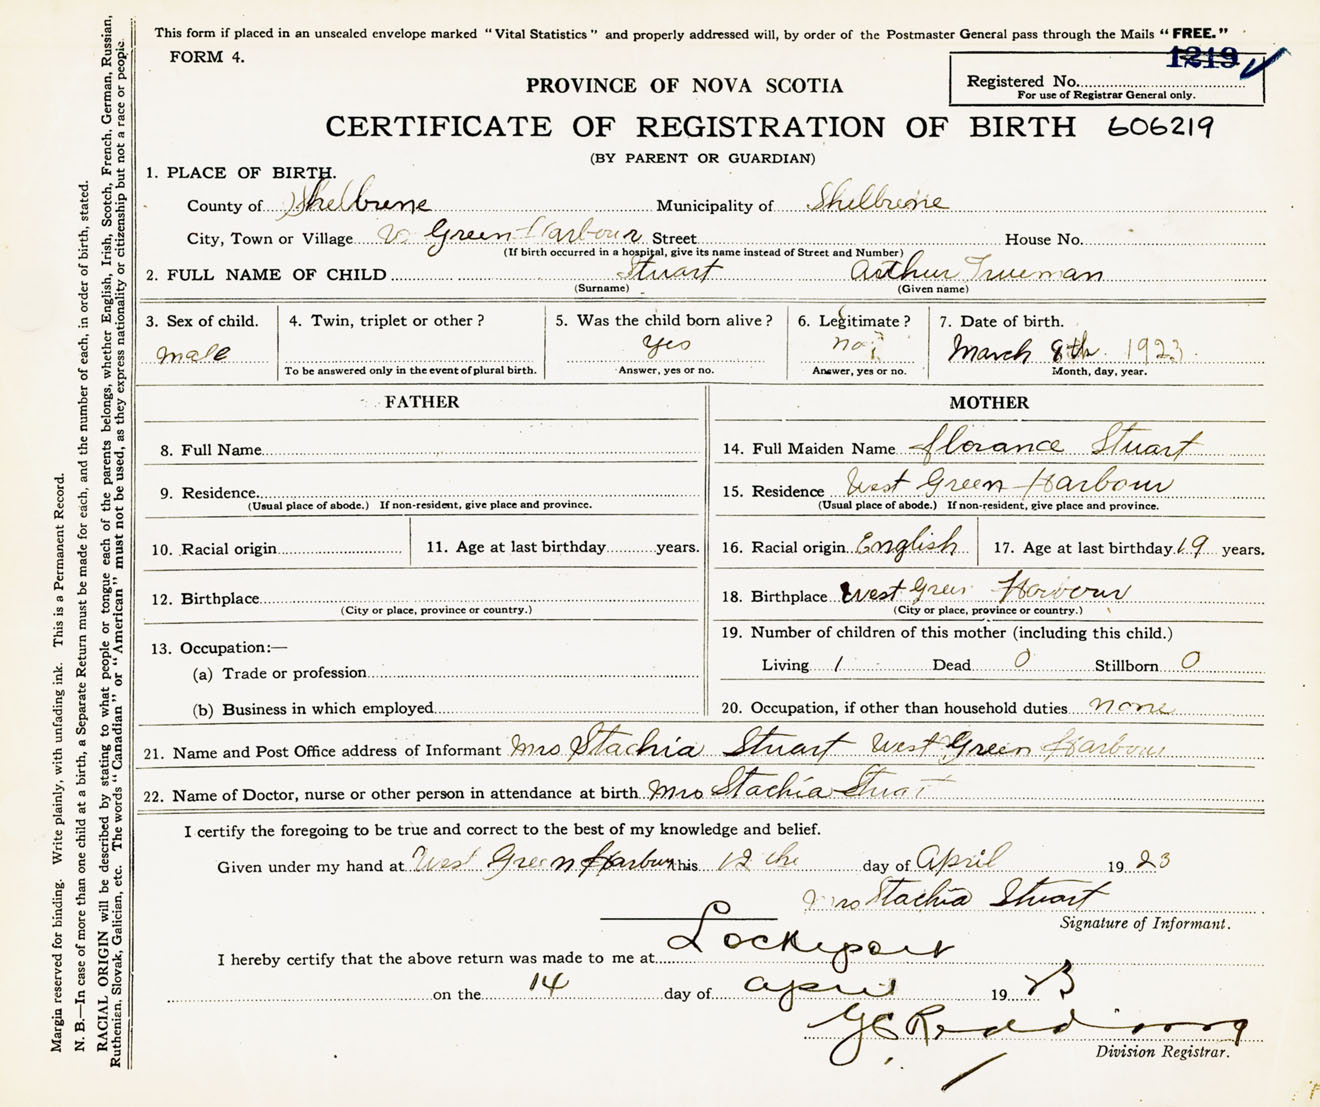 This form if placed in an unsealed envelope marked "Vital Statistics" and properly addressed will, by order of the Postmaster General pass through the Mails "FREE."
FORM 4.
1219
PROVINCE OF NOVA SCOTIA
Registered No.
For use of Registrar General only.
CERTIFICATE OF REGISTRATION OF BIRTH 606219
(BY PARENT OR GUARDIAN)
1. PLACE OF BIRTH.
County of Shelburne Municipality of Shelburne
City, Town or Village W Green Harbour Street House No.
(If birth occurred in a hospital, give its name instead of Street and Number)
2. FULL NAME OF CHILD Stuart Arthur Trueman
(Surname) (Given name)
3. Sex of child. 4. Twin, triplet or other? 5. Was the child born alive? 6. Legitimate? 7. Date of birth.
male yes no March 9th 1923
To be answered only in the event of plural birth. Answer, yes or no. Answer, yes or no. Month, day, year.
FATHER MOTHER
8. Full Name 14. Full Maiden Name florance Stuart
9. Residence 15. Residence West Green Harbour
(Usual place of abode.) If non-resident, give place and province. (Usual place of abode.) If non-resident, give place and province.
10. Racial origin 11. Age at last birthday years. 16. Racial origin English 17. Age at last birthday 19 years.
12. Birthplace 18. Birthplace West Green Harbour
(City or place, province or country.) (City or place, province or country.)
13. Occupation:— 19. Number of children of this mother (including this child.)
(a) Trade or profession Living 1 Dead 0 Stillborn 0
(b) Business in which employed 20. Occupation, if other than household duties none
21. Name and Post Office address of Informant Mrs Stachia Stuart West Green Harbour
22. Name of Doctor, nurse or other person in attendance at birth Mrs Stachia Stuart
I certify the foregoing to be true and correct to the best of my knowledge and belief.
Given under my hand at West Green Harbour this 12 the day of April 1923
Mrs Stachia Stuart
Signature of Informant.
I hereby certify that the above return was made to me at Lockeport
on the 14 day of April 1923
Division Registrar.
Margin reserved for binding. Write plainly, with unfading ink. This is a Permanent Record.
N. B.—In case of more than one child at a birth, a Separate Return must be made for each, and the number of each, in order of birth, stated.
RACIAL ORIGIN will be described by stating to what people or tongue each of the parents belongs, whether English, Irish, Scotch, French, German, Russian,
Ruthenian, Slovak, Galician, etc. The words "Canadian" or "American" must not be used, as they express nationality or citizenship but not a race or people.